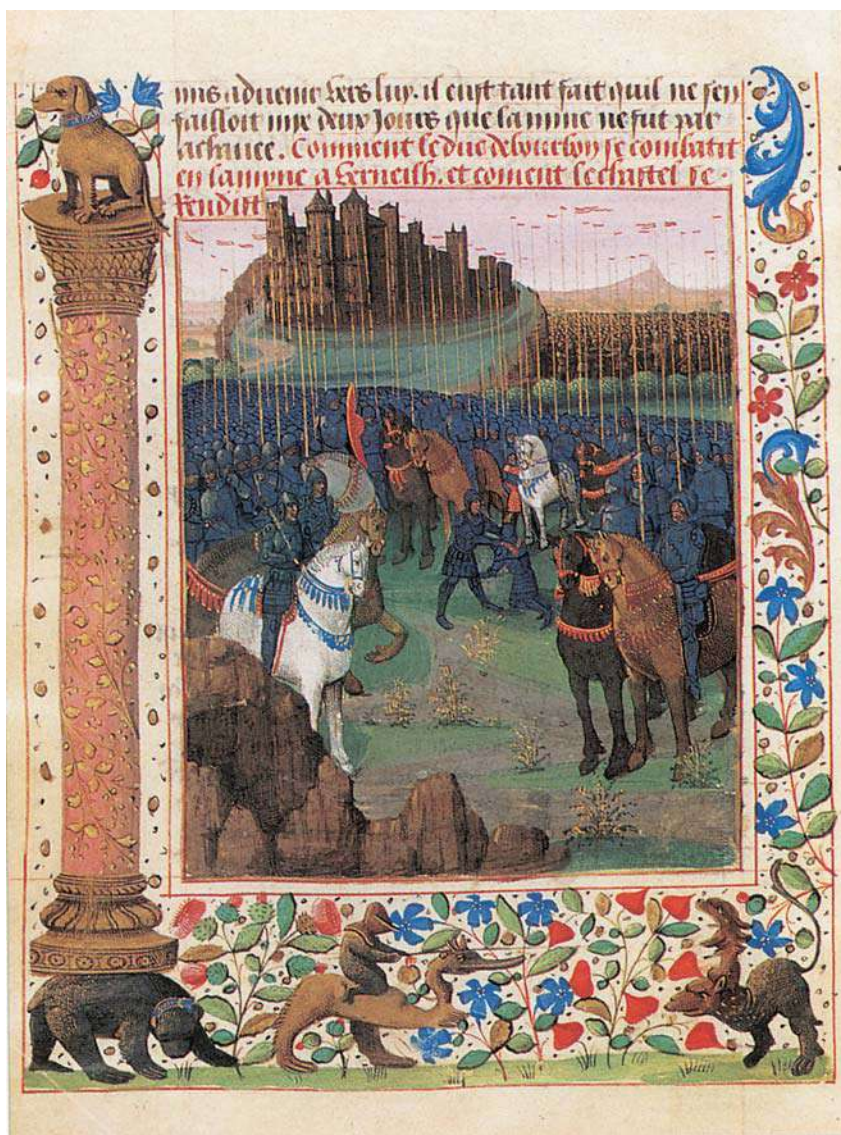 mis aduenir vers luy. il eust tant fait quil ne sen
failloit mye deux Jours que la mine ne fut par
acheuee. Comment le duc de bourbon se combatit
en la myne a verneilh. et coment le chastel se
Rendist